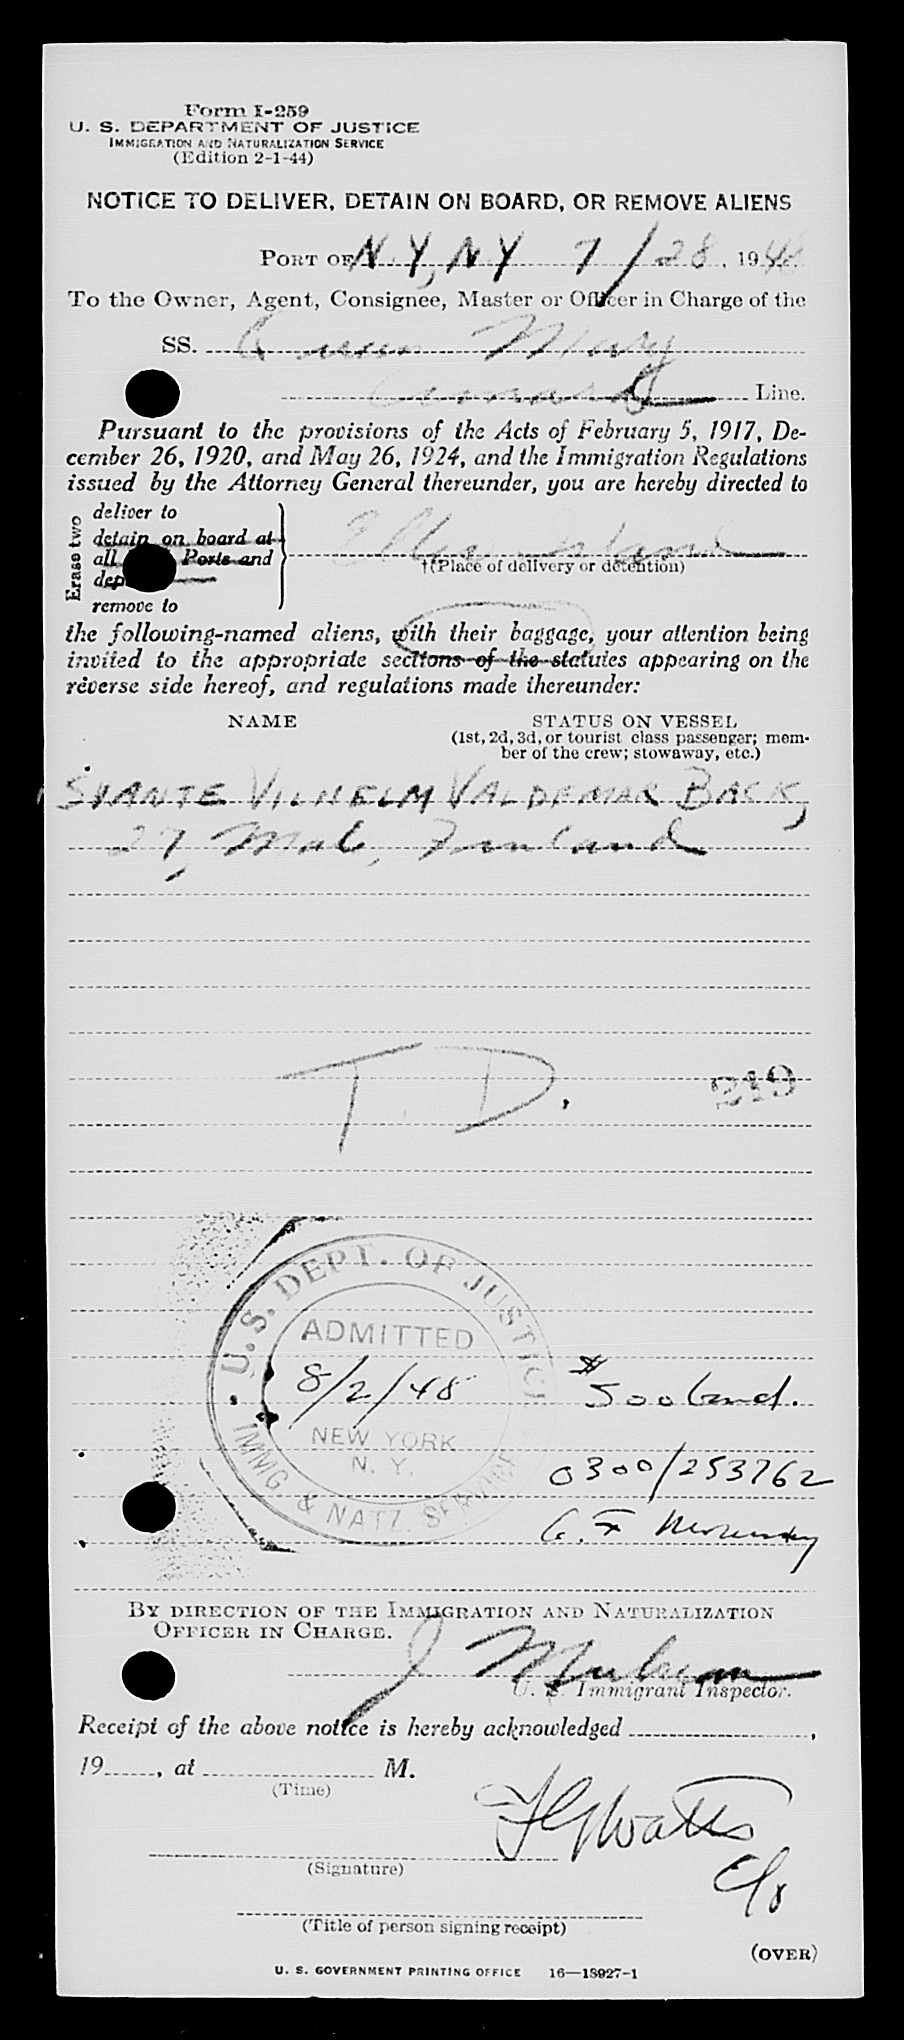 Form I-259
U. S. DEPARTMENT OF JUSTICE
IMMIGRATION AND NATURALIZATION SERVICE
(Edition 2-1-44)
NOTICE TO DELIVER, DETAIN ON BOARD, OR REMOVE ALIENS
PORT OF N.Y, NY 7/28, 1948
To the Owner, Agent, Consignee, Master or Officer in Charge of the
SS. Queen Mary
Cunard Line.
Pursuant to the provisions of the Acts of February 5, 1917, De-
cember 26, 1920, and May 26, 1924, and the Immigration Regulations
issued by the Attorney General thereunder, you are hereby directed to
Erase two
deliver to
detain on board at
all Ports and
remove to
Ellis Island
†(Place of delivery or detention)
the following-named aliens, with their baggage, your attention being
invited to the appropriate sections of the statutes appearing on the
reverse side hereof, and regulations made thereunder:
NAME STATUS ON VESSEL
(1st, 2d, 3d, or tourist class passenger; mem-
ber of the crew; stowaway, etc.)
SVANTE VILHELM VALDEMAR BACK,
27, Male, Finland
T. D.
219
U. S. DEPT. OF JUSTICE
ADMITTED
8/2/48
NEW YORK
N. Y.
IMMG & NATZ SERVICE
$500 bond.
0300/253762
BY DIRECTION OF THE IMMIGRATION AND NATURALIZATION
OFFICER IN CHARGE.
U. S. Immigrant Inspector.
Receipt of the above notice is hereby acknowledged ,
19 , at M.
(Time)
(Signature)
(Title of person signing receipt)
(OVER)
U. S. GOVERNMENT PRINTING OFFICE 16—18927-1